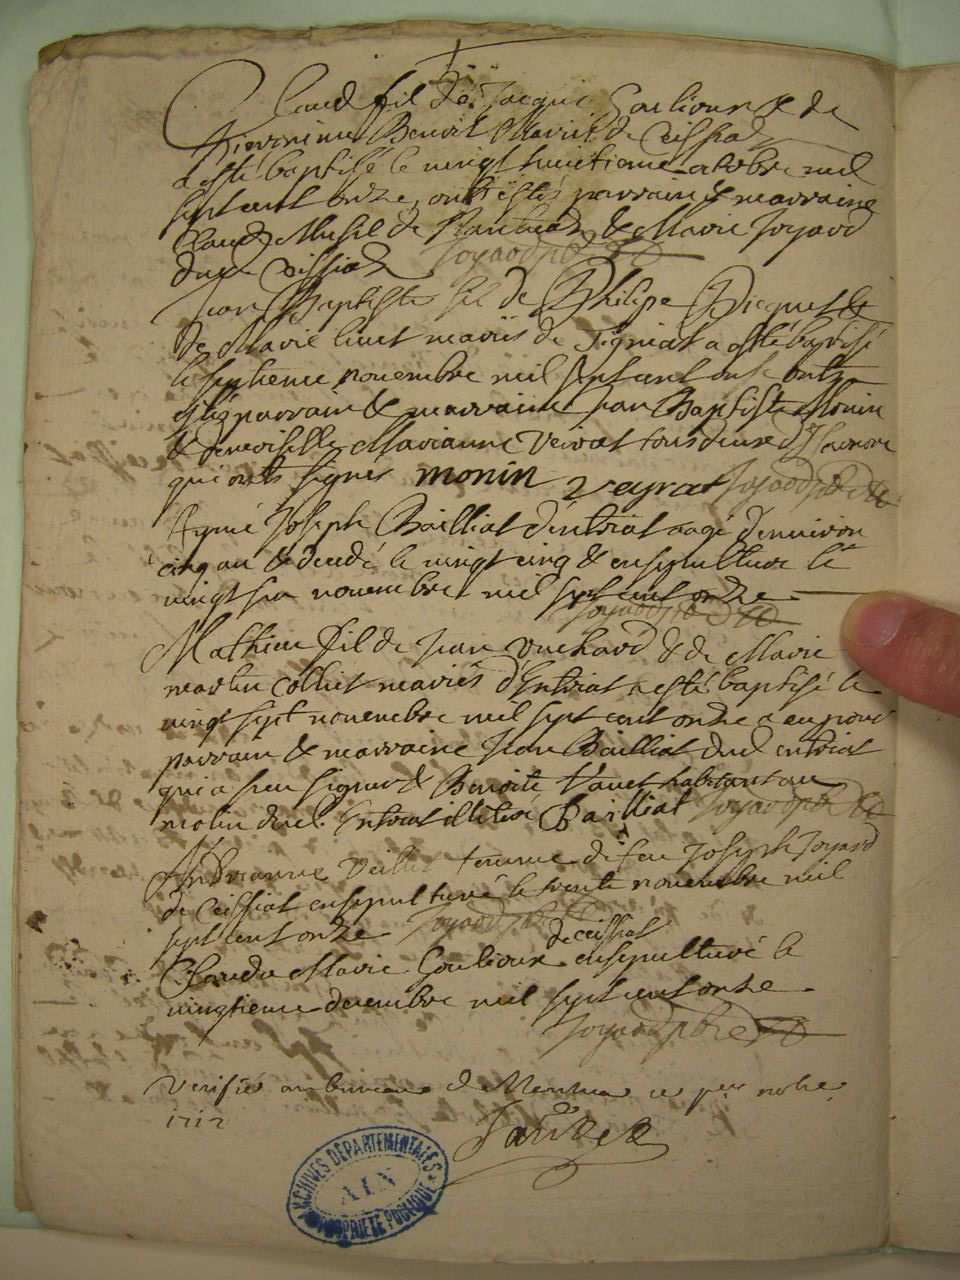 Claude fil de Jacque Goulioux & de
Pierrnine Benoit Mariés de Ceissiat
a esté baptisé le vingt huictieme octobre mil
sept cent onze, ont estés parrain & marraine
Claude Musil de Nantua & Marie Joyard
dud. Ceissiat Joyard ptre
Jean Baptiste fil de Philipe Picquet &
de Marie mariés de Signiat a esté baptisé
le septieme novembre mil sept cent onse ont
estés parrain & marraine Jean Baptiste Monin
& demoiselle Marianne Veirat tous deux d'
qui onts signes monin veyrat Joyard ptre
Aymé Joseph Bailliat d'entriat aagé d'environ
cinq an & decedé le vingt cinq & ensepulturé le
vingt six novembre mil sept cent onze.
Joyard ptre
Mathieu fil de Jean Vuchard & de Marie
martin collict mariés d'Entriat a esté baptisé le
vingt sept novembre mil sept cent onze a eu pour
parrain & marraine Jean Bailliat dud entriat
qui a sceu signer & Benoite habitant au
molin dud. Entriat illiteré Bailliat Joyard ptre
Andreanne femme de feu Joseph Joyard
de Ceissiat ensepulturé le trente novembre mil
sept cent onze Joyard ptre
de ceissiat
Clauda Marie Goulioux ensepulturé le
vingtieme decembre mil sept cent onze.
Joyard ptre
Verifié au bureau de Nantua ce per
1712
ARCHIVES DÉPARTEMENTALES
AIN
PROPRIÉTÉ PUBLIQUE